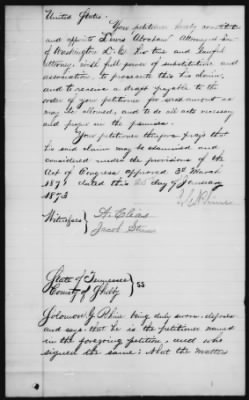 United States.
Your petitioner hereby constitutes
and appoints Lewis Abraham Attorney at Law
of Washington D.C. his true and lawful
attorney, with full power of substitution and
association, to prosecute this his claim,
and to receive a draft payable to the
order of your petitioner for such amount as
may be allowed, and to do all acts necessary
and proper in the premises.
Your petitioner therefore prays that
his said claim may be examined and
considered under the provisions of the
Act of Congress approved 3rd March
1871 dated this 25 day of January
1873
Witnesses }
Jacob
State of Tennessee } ss
County of Shelby
Solomon G. Rhine being duly sworn, deposes
and says, that he is the petitioner named
in the foregoing petition, and who
signed the same; that the matters